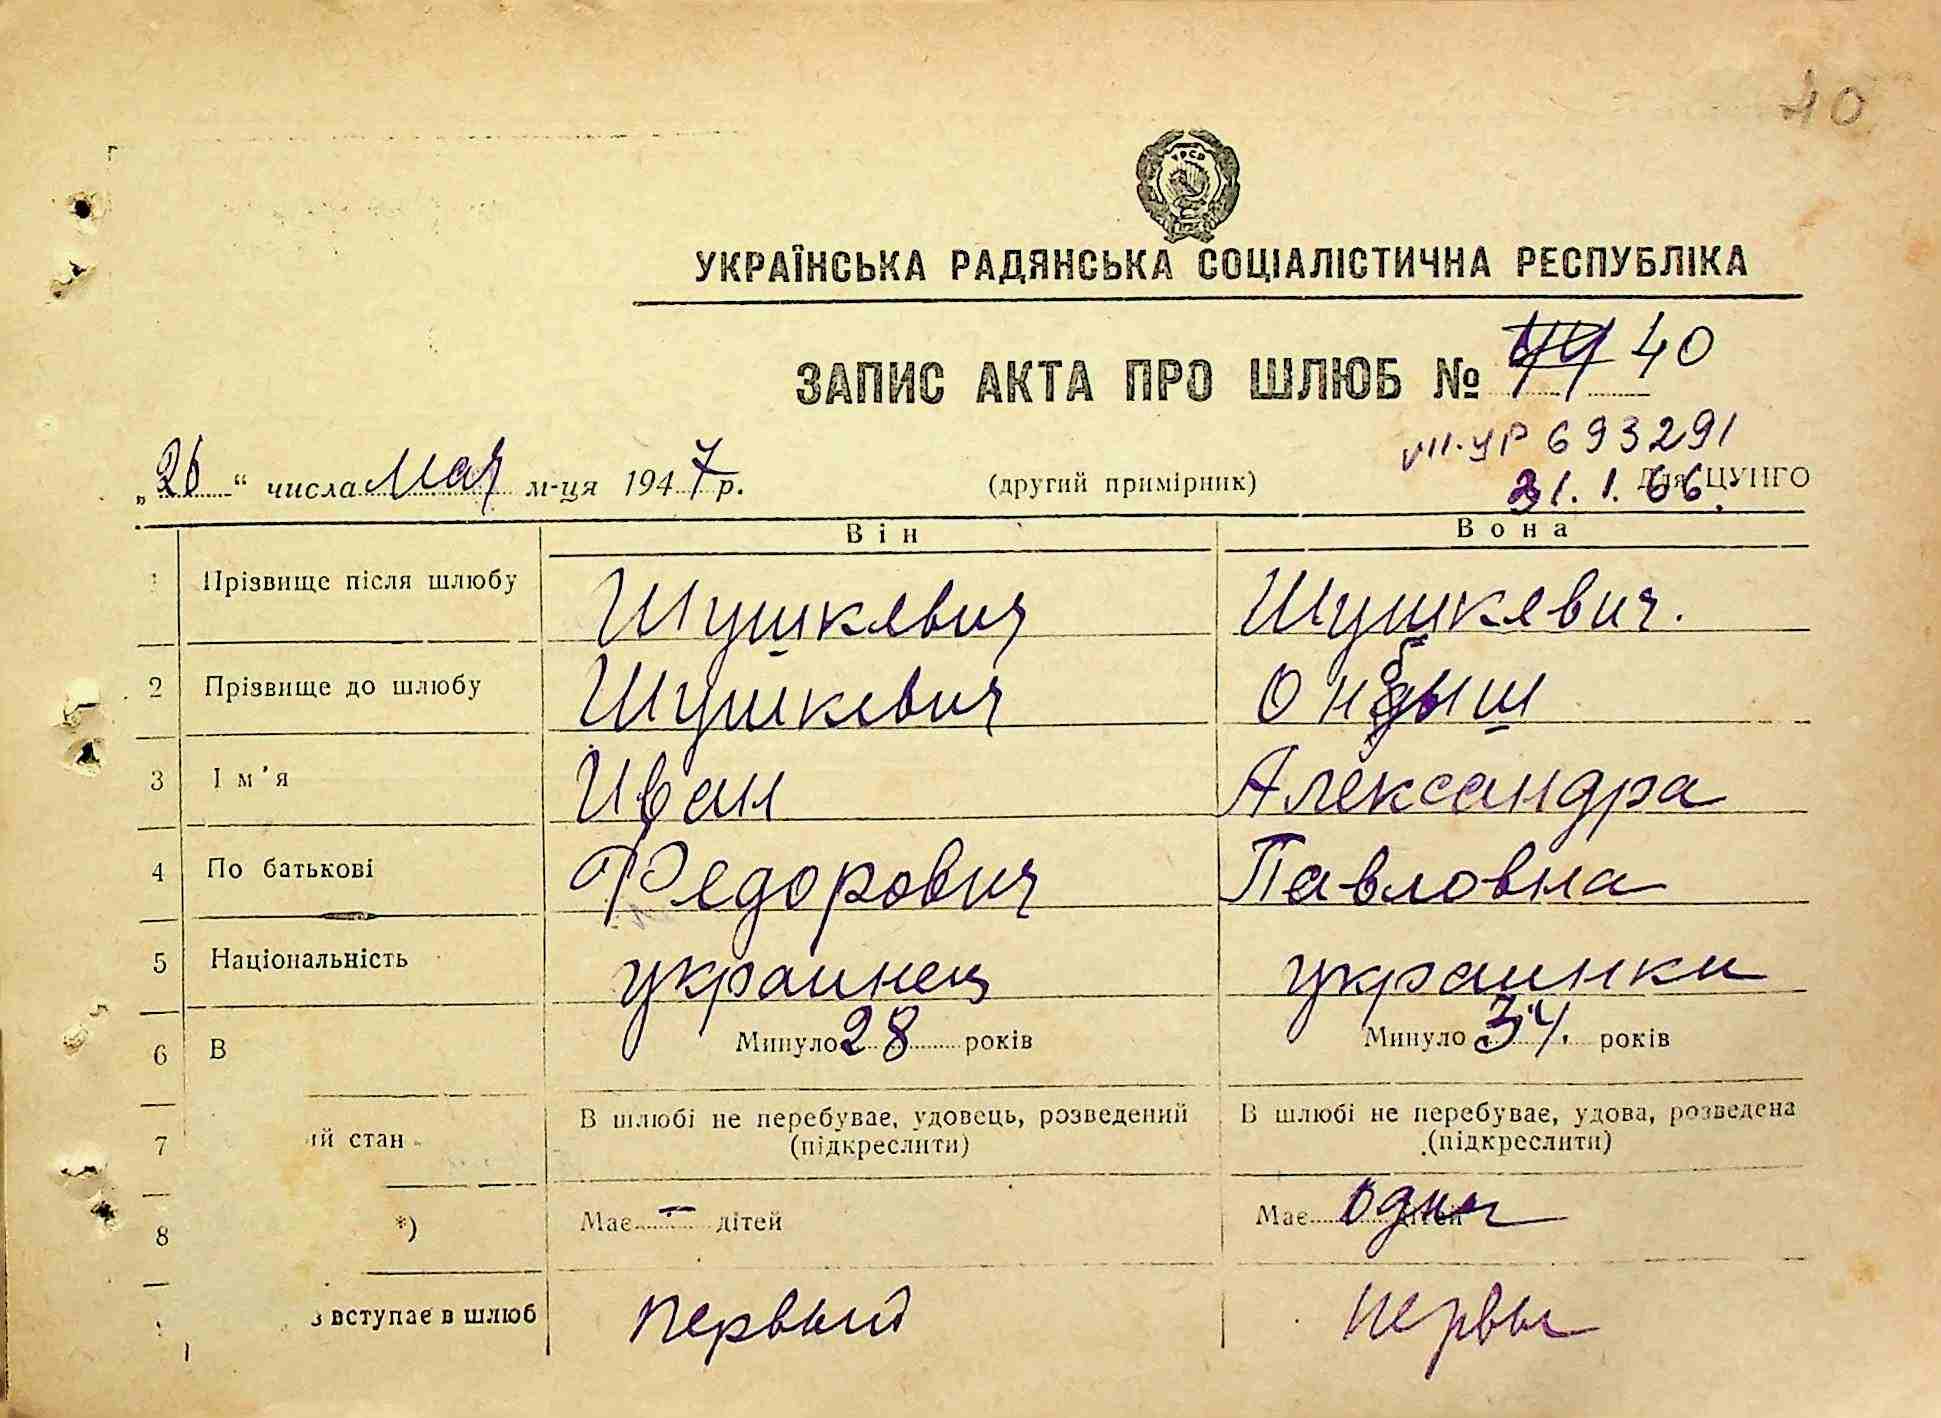 40
УРСР
УКРАЇНСЬКА РАДЯНСЬКА СОЦІАЛІСТИЧНА РЕСПУБЛІКА
ЗАПИС АКТА ПРО ШЛЮБ № 40
VII-УР 693291
„26“ числа Мая м-ця 1947 р. (другий примірник) Для ЦУНГО
31.1.66.
Він Вона
1 Прізвище після шлюбу Шушкевич Шушкевич.
2 Прізвище до шлюбу Шушкевич
3 Ім'я Иван Александра
4 По батькові Федорович Павловна
5 Національність украинец украинка
6 В Минуло 28 років Минуло 34 років
7 ий стан В шлюбі не перебуває, удовець, розведений В шлюбі не перебуває, удова, розведена
(підкреслити) (підкреслити)
8 *) Має - дітей Має одна дітей
з вступає в шлюб первый первы